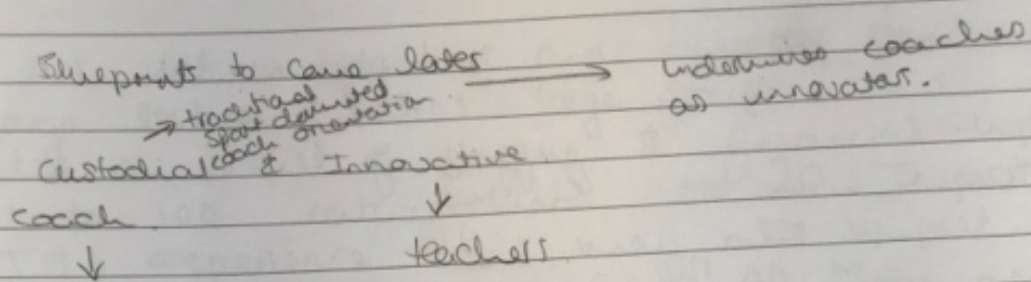 Blueprints to come later → undermines coaches
as innovators.
→ traditional
sport dominated
coach orientation
Custodial & Innovative
coach.
↓ ↓
teachers